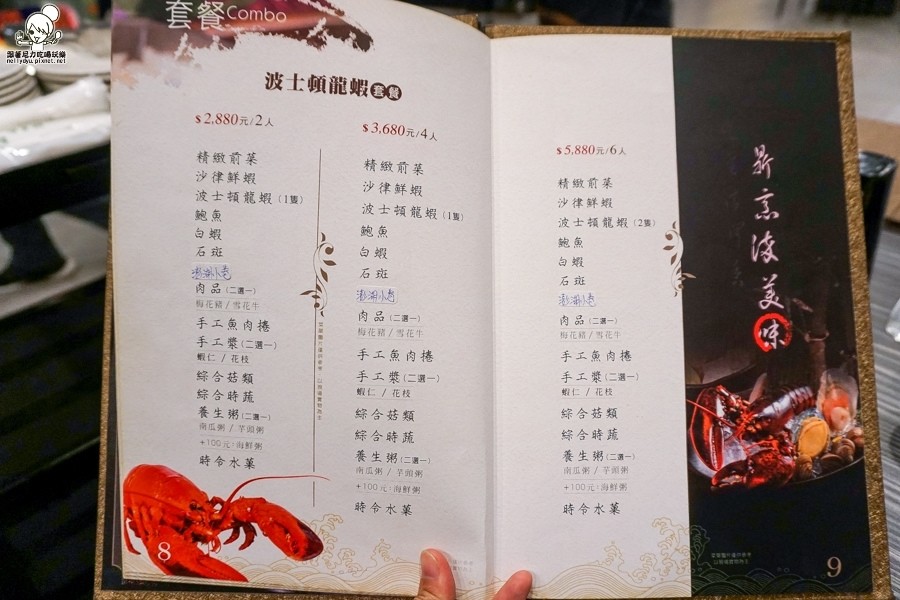 跟著尼力吃喝玩樂
nellydyu.pixnet.net
套餐Combo
波士頓龍蝦套餐
$2,880元/2人
精緻前菜
沙律鮮蝦
波士頓龍蝦(1隻)
鮑魚
白蝦
石斑
澎湖小卷
肉品(二選一)
梅花豬/雪花牛
手工魚肉捲
手工漿(二選一)
蝦仁/花枝
綜合菇類
綜合時蔬
養生粥(二選一)
南瓜粥/芋頭粥
+100元:海鮮粥
時令水菓
$3,680元/4人
精緻前菜
沙律鮮蝦
波士頓龍蝦(1隻)
鮑魚
白蝦
石斑
澎湖小卷
肉品(二選一)
梅花豬/雪花牛
手工魚肉捲
手工漿(二選一)
蝦仁/花枝
綜合菇類
綜合時蔬
養生粥(二選一)
南瓜粥/芋頭粥
+100元:海鮮粥
時令水菓
菜單圖片僅供參考
以現場實物為主
8
$5,880元/6人
精緻前菜
沙律鮮蝦
波士頓龍蝦(2隻)
鮑魚
白蝦
石斑
澎湖小卷
肉品(二選一)
梅花豬/雪花牛
手工魚肉捲
手工漿(二選一)
蝦仁/花枝
綜合菇類
綜合時蔬
養生粥(二選一)
南瓜粥/芋頭粥
+100元:海鮮粥
時令水菓
鼎烹海美味
菜單圖片僅供參考
以現場實物為主
9